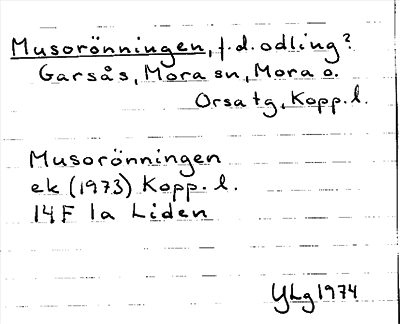 Musorönningen, f.d. odling?
Garsås, Mora sn, Mora o.
Orsa tg, Kopp. l.
Musorönningen
ek (1973) Kopp. l.
14 F 1a Liden
YLg 1974